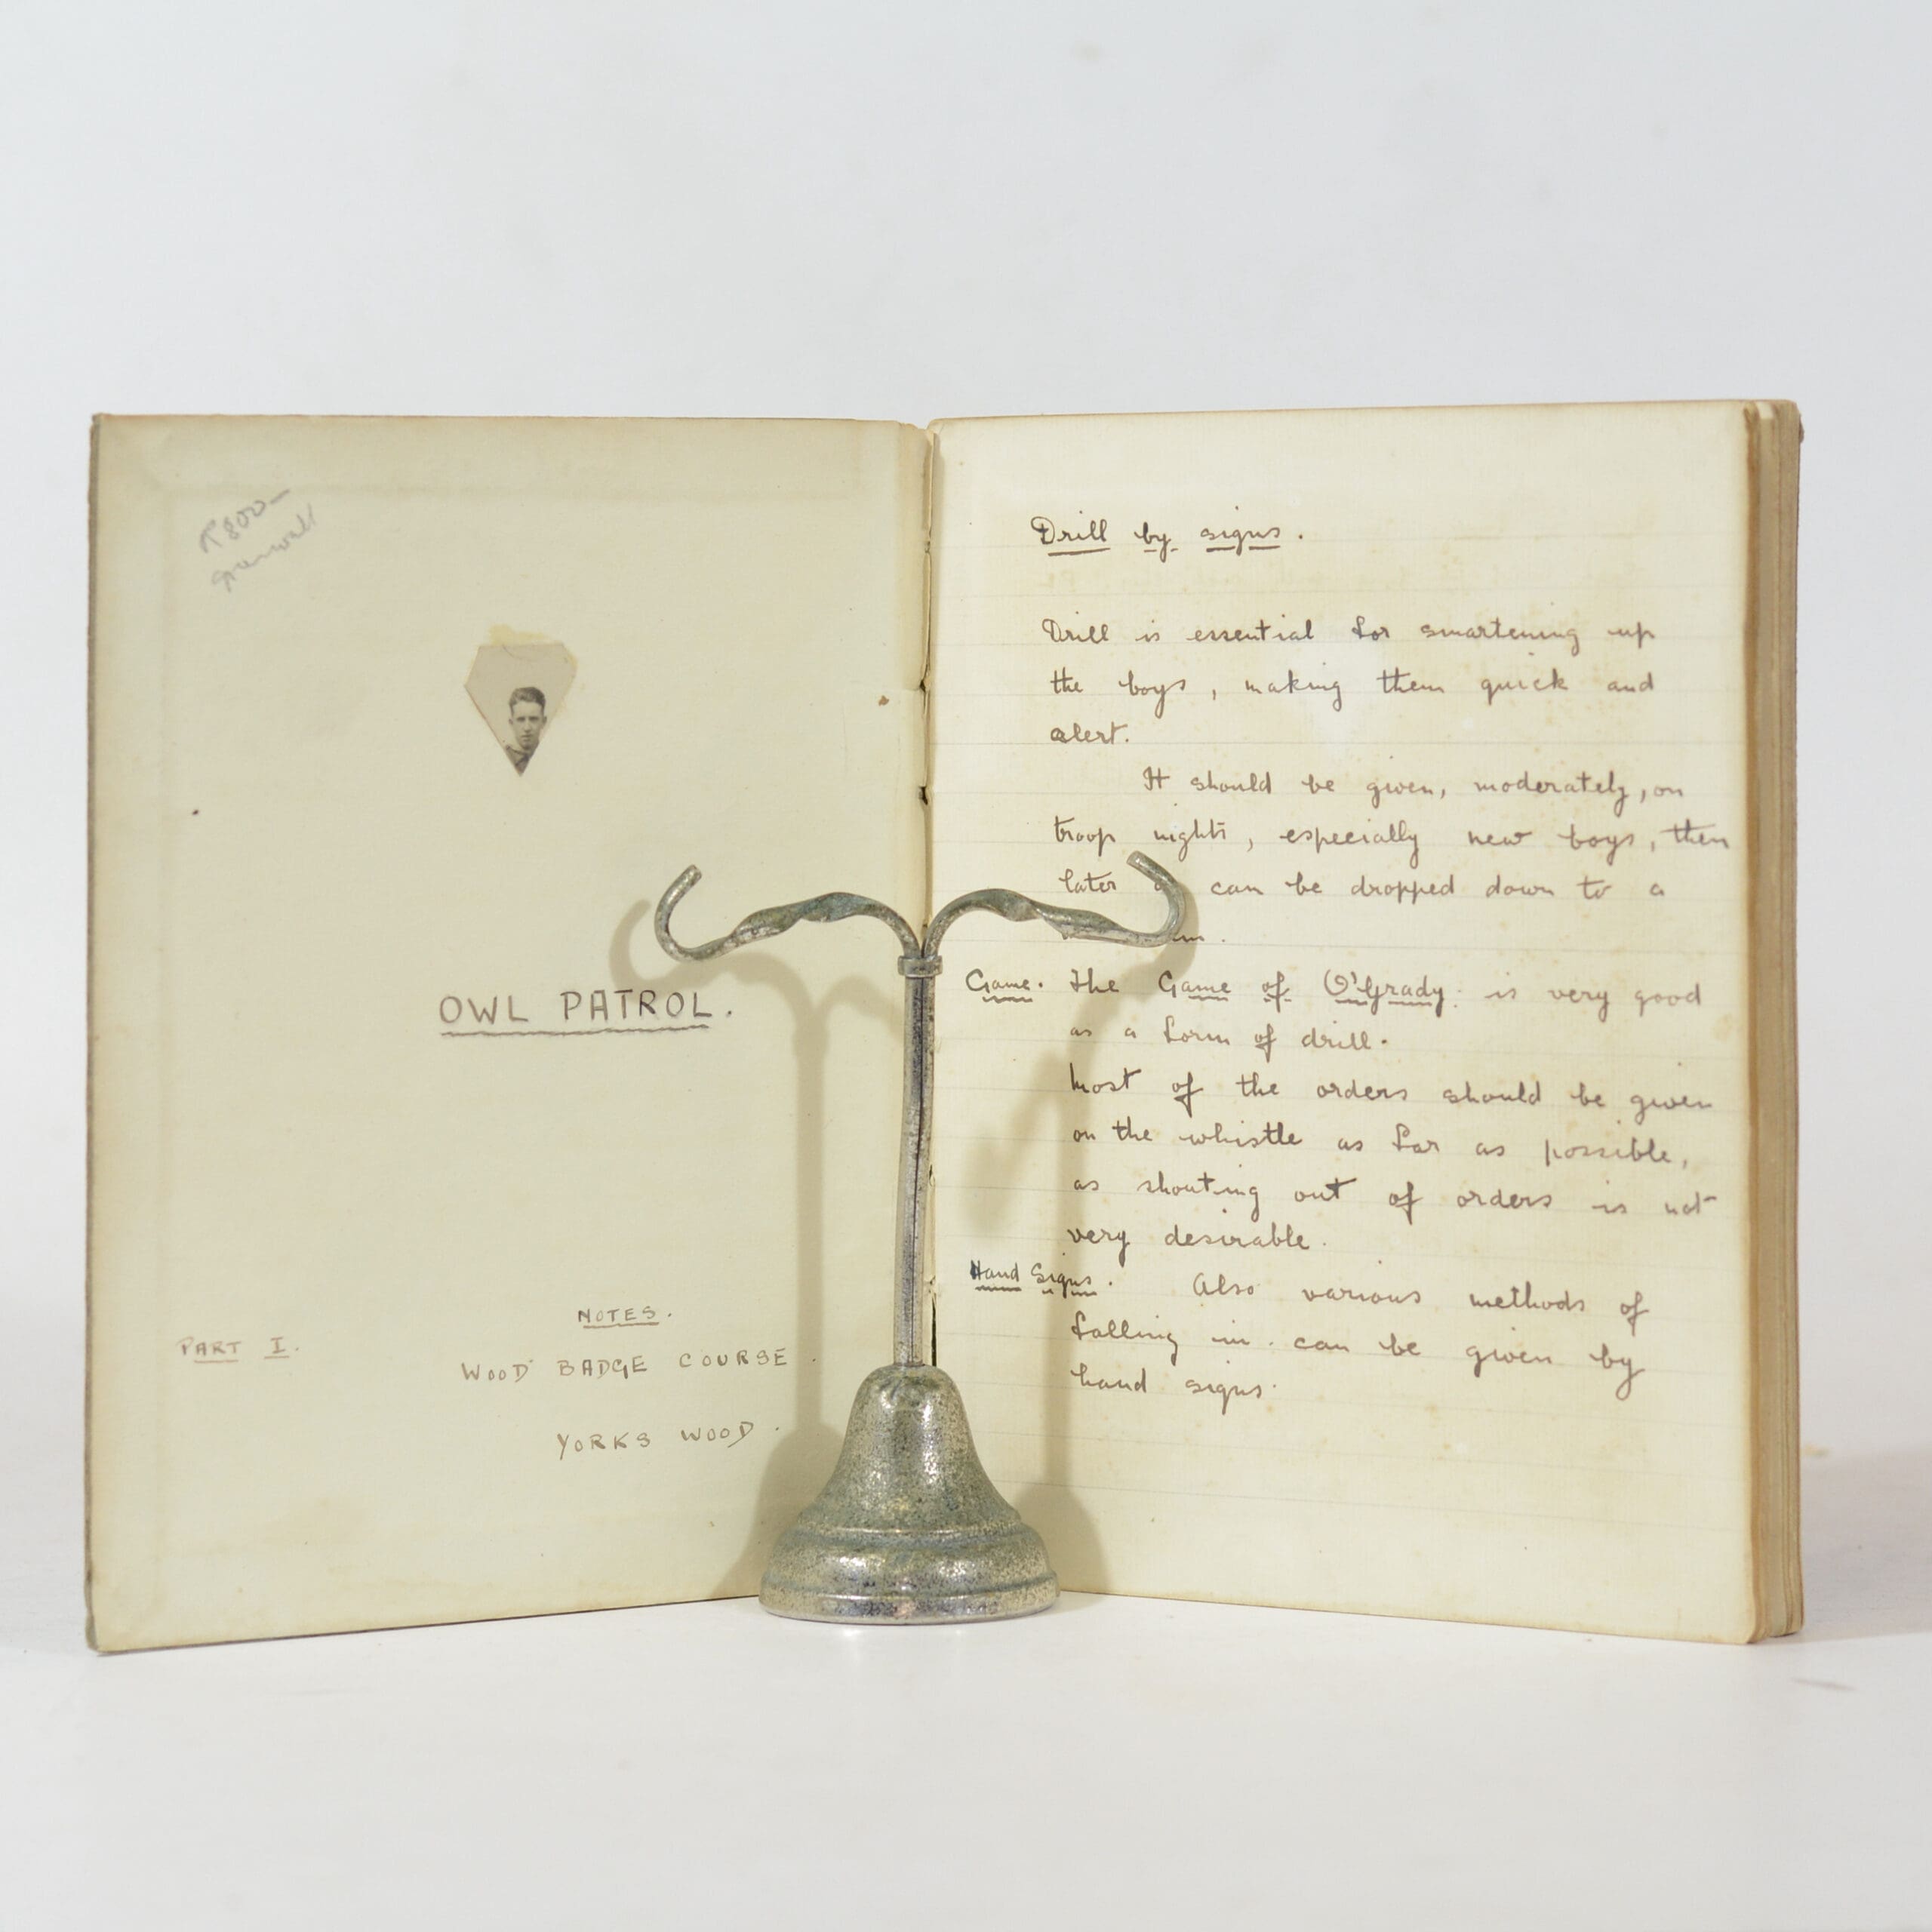 R800-
OWL PATROL.
NOTES.
PART I.
WOOD BADGE COURSE.
YORKS WOOD.
Drill by signs.
Drill is essential for smartening up
the boys, making them quick and
alert.
It should be given, moderately, on
troop nights, especially new boys, then
later can be dropped down to a
Game. The Game of O'Grady. is very good
as a form of drill.
Most of the orders should be given
on the whistle as far as possible,
as shouting out of orders is not
very desirable.
Hand Signs. Also various methods of
falling in. can be given by
hand signs.